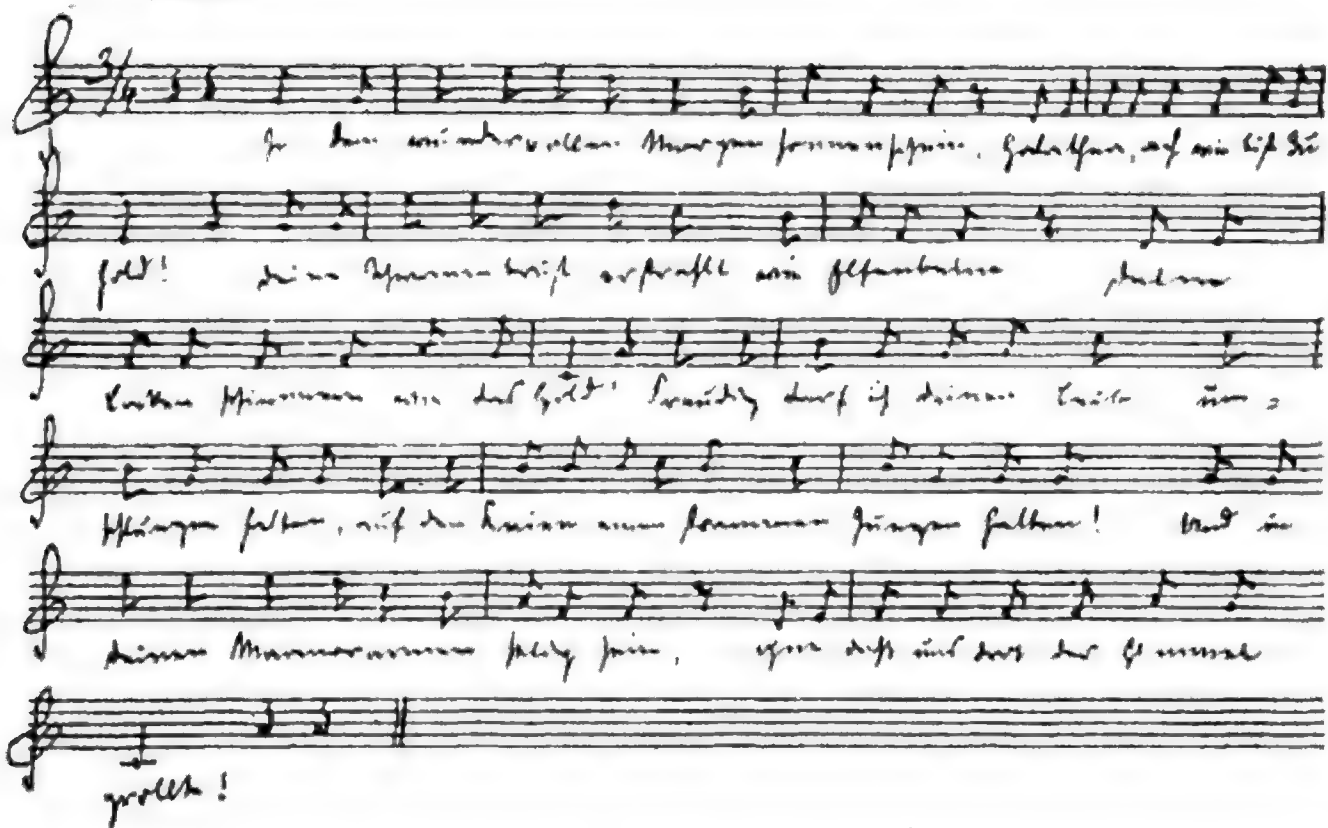 3/4
In dem wundervollen Morgen sonnenschein, Galathea, ach wie bist Du
hold! deine erstrahlt wie Elfenbein deine
Locken schimmern wie das Gold! Freudig darf ich deinen Leib um-
schlungen halten, auf den Knien einen strammen Jungen halten! Und in
deinen Marmorarmen selig sein, ohne daß uns dort der Himmel
grollt!